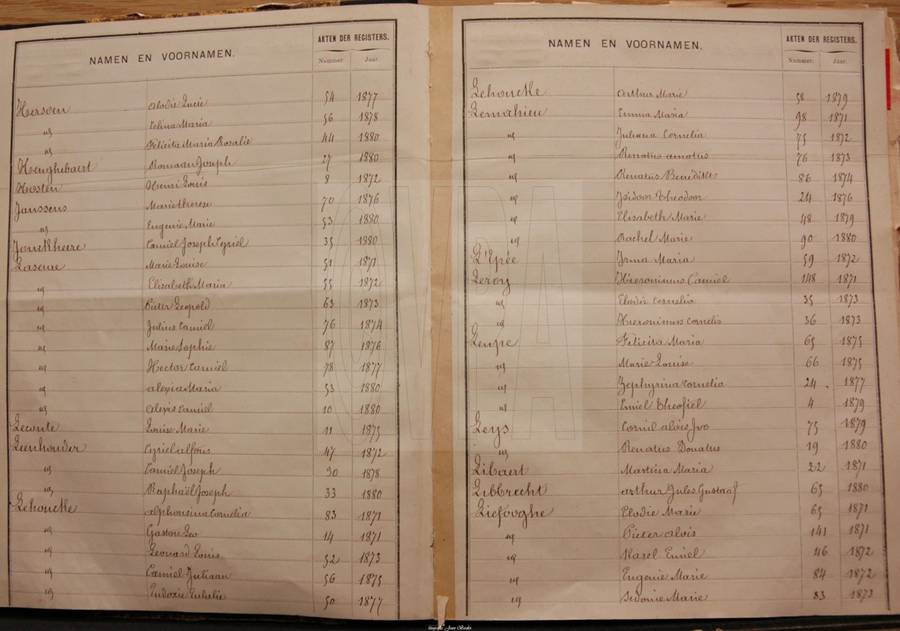 AKTEN DER REGISTERS.
NAMEN EN VOORNAMEN.
Nummer. Jaar.
Hersoen Elodie Lucie 54 1877
id Celina Maria 56 1878
id Felicita Maria Rosalie 44 1880
Hoenghebaert Romaan Joseph 27 1880
Hosten Henri Louis 8 1872
Janssens Marie therese 70 1876
id Eugenie Marie 53 1880
Jonckheere Camiel Joseph Cyriel 35 1880
Laseure Marie Louise 51 1871
id Elisabeth Maria 55 1872
id Pieter Leopold 63 1873
id Julius Camiel 76 1874
id Marie Sophie 87 1876
id Hector Camiel 78 1877
id alexia Maria 53 1880
id alexis Camiel 10 1880
Lecoute Louise Marie 11 1875
Leenhouder Cyriel alfons 47 1872
id Camiel Joseph 30 1878
id Raphaël Joseph 33 1880
Lehoucke alphonsina Cornelia 83 1871
id Gaston Leo 14 1871
id Leonard Louis 52 1873
id Camiel Juliaan 56 1875
id Eudoxie Eulalie 50 1877
AKTEN DER REGISTERS.
NAMEN EN VOORNAMEN.
Nummer. Jaar.
Lehoucke Arthur Marie 58 1879
Lemahieu Emma Maria 98 1871
id Juliana Cornelia 75 1872
id Renatus amatus 76 1873
id Renatus Benedictus 86 1874
id Isidoor Theodoor 24 1876
id Elisabeth Marie 48 1879
id Rachel Marie 90 1880
L'Epée Irma Maria 59 1872
Leroy Hieronimus Camiel 148 1871
id Elodie Cornelia 35 1873
id Hieronimus Cornelis 36 1873
Leupe Felicita Maria 65 1875
id Marie Louise 66 1875
id Zephyrina Cornelia 24 1877
id Emiel Theofiel 4 1879
Leys Corniel alois Ivo 75 1879
id Renatus Donatus 19 1880
Libaert Martina Maria 22 1871
Libbrecht arthur Jules Gustaaf 65 1880
Liefooghe Elodie Marie 65 1871
id Pieter alois 141 1871
id Karel Emiel 46 1872
id Eugenie Marie 84 1872
id Sidonie Marie 83 1873